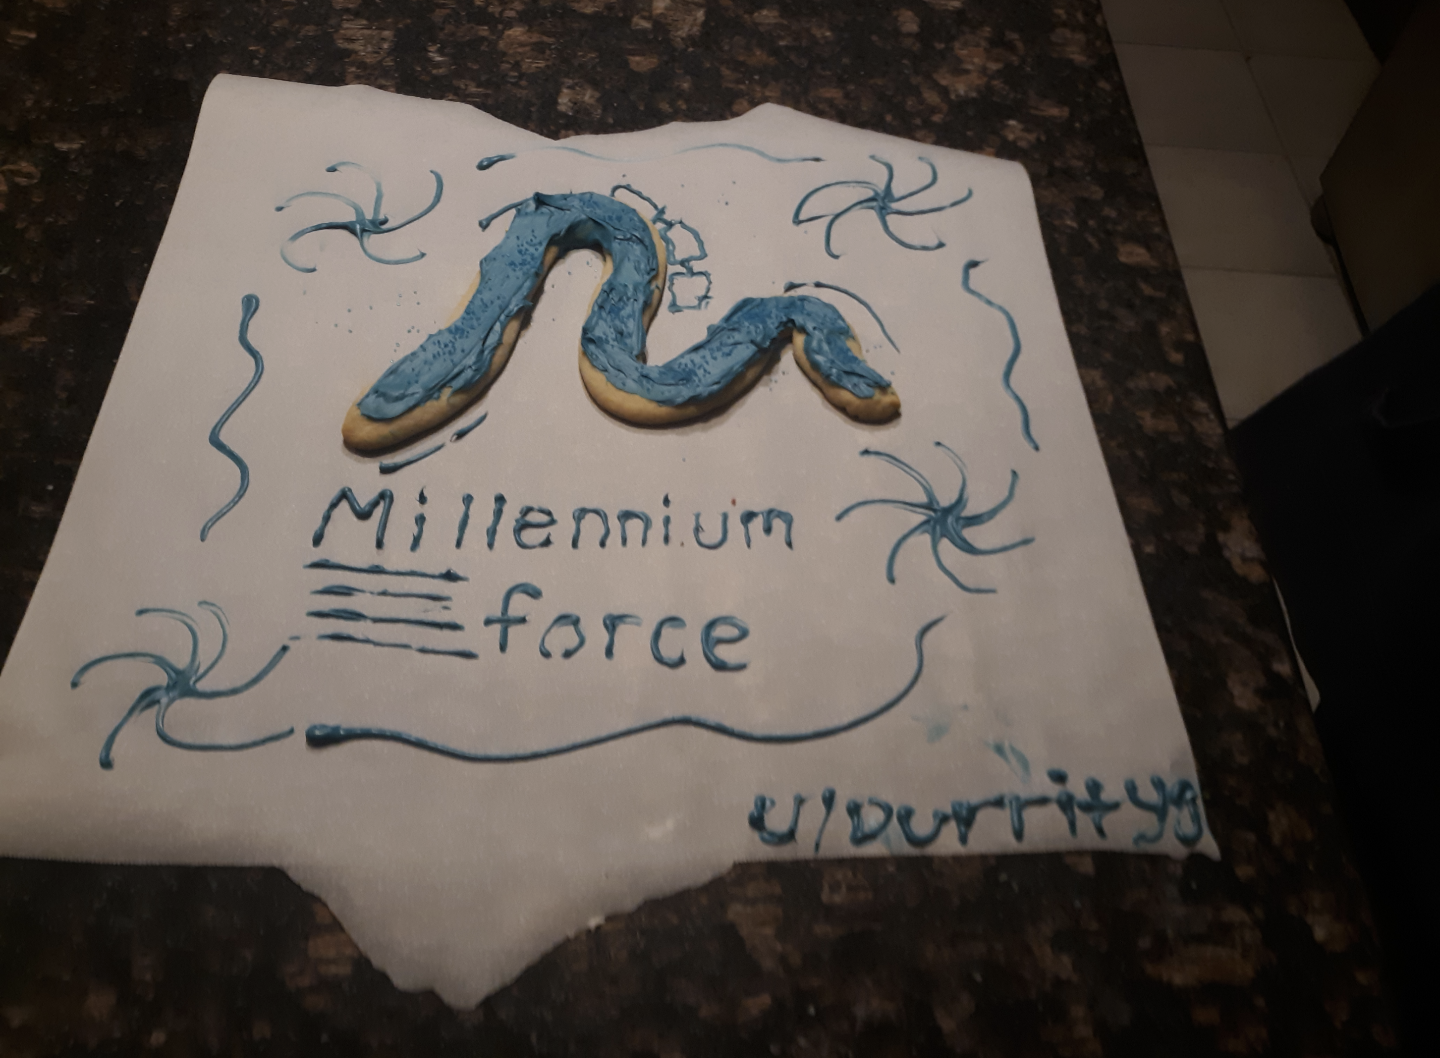 Millennium
force
u/Durrityg